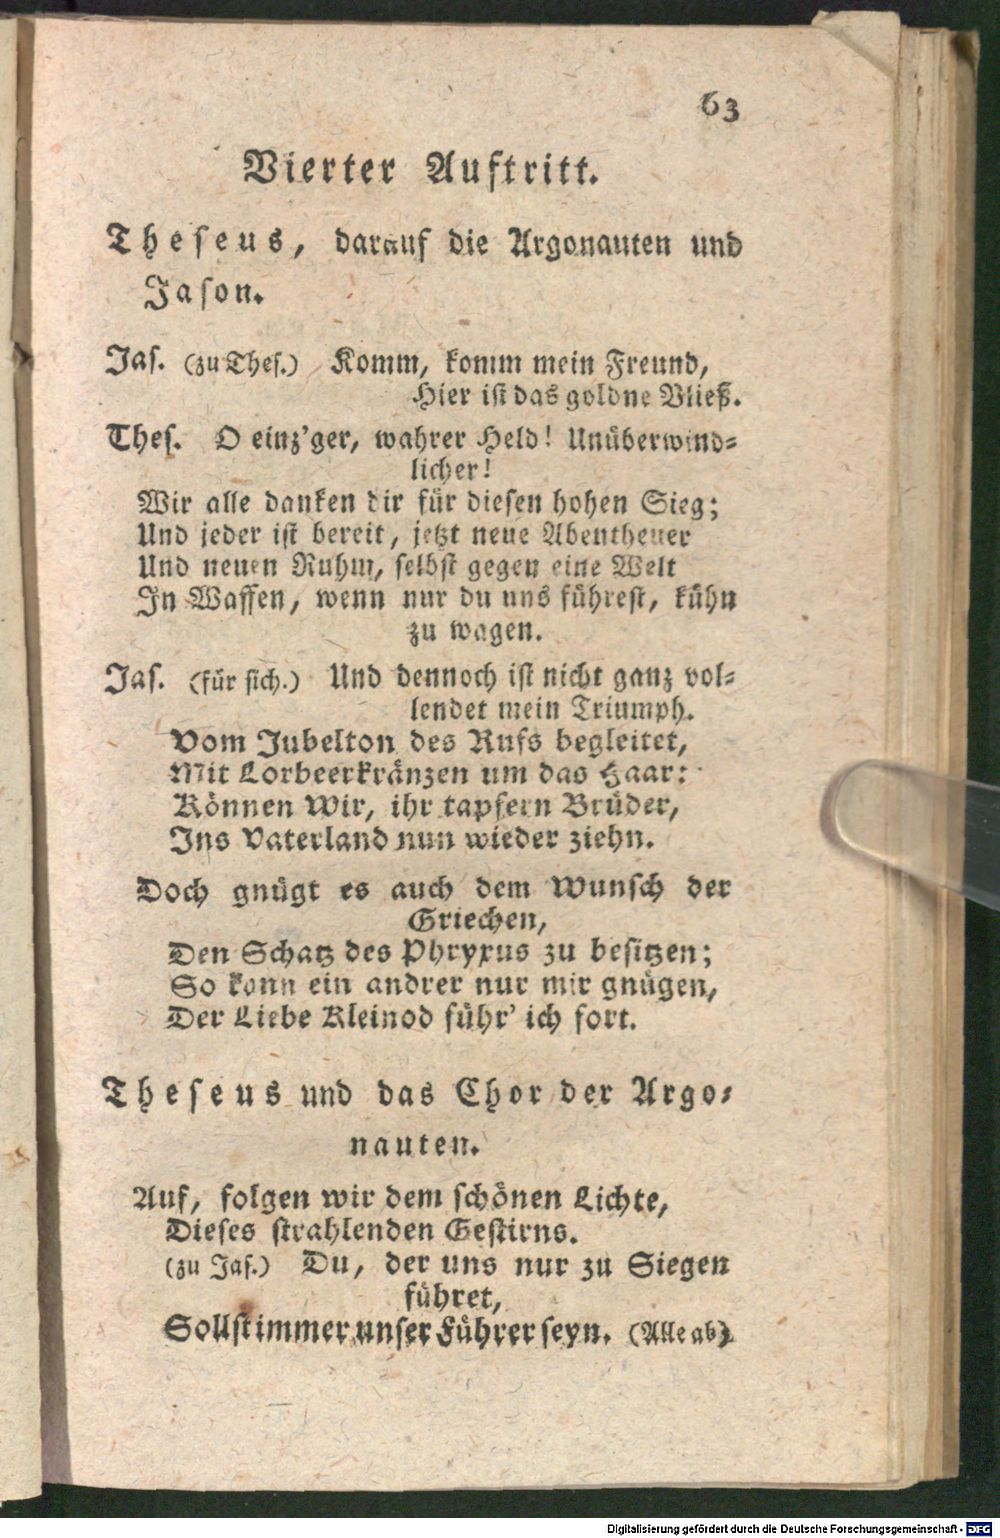 63
Vierter Auftritt.
Theseus, darauf die Argonauten und
Jason.
Jas. (zu Thes.) Komm, komm mein Freund,
Hier ist das goldne Vließ.
Thes. O einz'ger, wahrer Held! Unüberwind-
licher!
Wir alle danken dir für diesen hohen Sieg;
Und jeder ist bereit, jetzt neue Abentheuer
Und neuen Ruhm, selbst gegen eine Welt
In Waffen, wenn nur du uns führest, kühn
zu wagen.
Jas. (für sich.) Und dennoch ist nicht ganz vol-
lendet mein Triumph.
Vom Jubelton des Rufs begleitet,
Mit Lorbeerkränzen um das Haar:
Können wir, ihr tapfern Brüder,
Ins Vaterland nun wieder ziehn.
Doch gnügt es auch dem Wunsch der
Griechen,
Den Schatz des Phryxus zu besitzen;
So konn ein andrer nur mir gnügen,
Der Liebe Kleinod führ' ich fort.
Theseus und das Chor der Argo-
nauten.
Auf, folgen wir dem schönen Lichte,
Dieses strahlenden Gestirns.
(zu Jas.) Du, der uns nur zu Siegen
führet,
Sollst immer unser Führer seyn. (Alle ab)
Digitalisierung gefördert durch die Deutsche Forschungsgemeinschaft - DFG